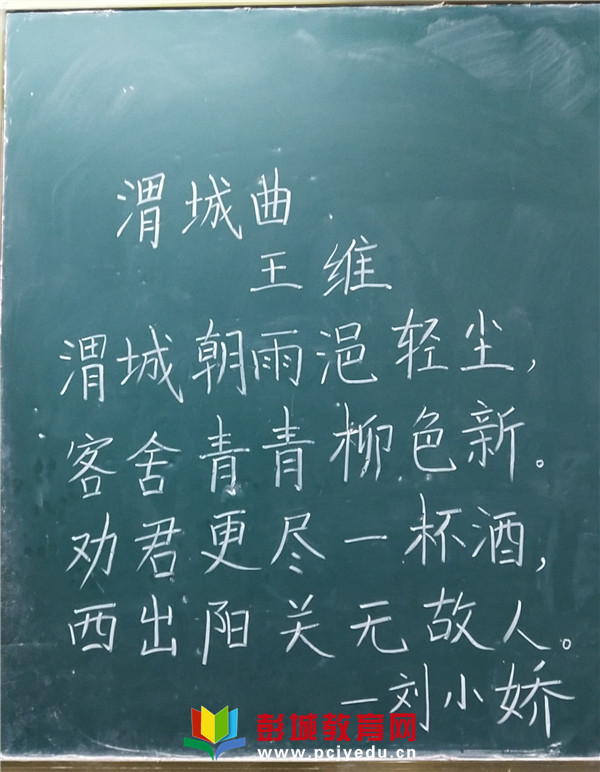 渭城曲
王维
渭城朝雨浥轻尘，
客舍青青柳色新。
劝君更尽一杯酒，
西出阳关无故人。
—刘小娇
彭城教育网
www.pcivedu.cn